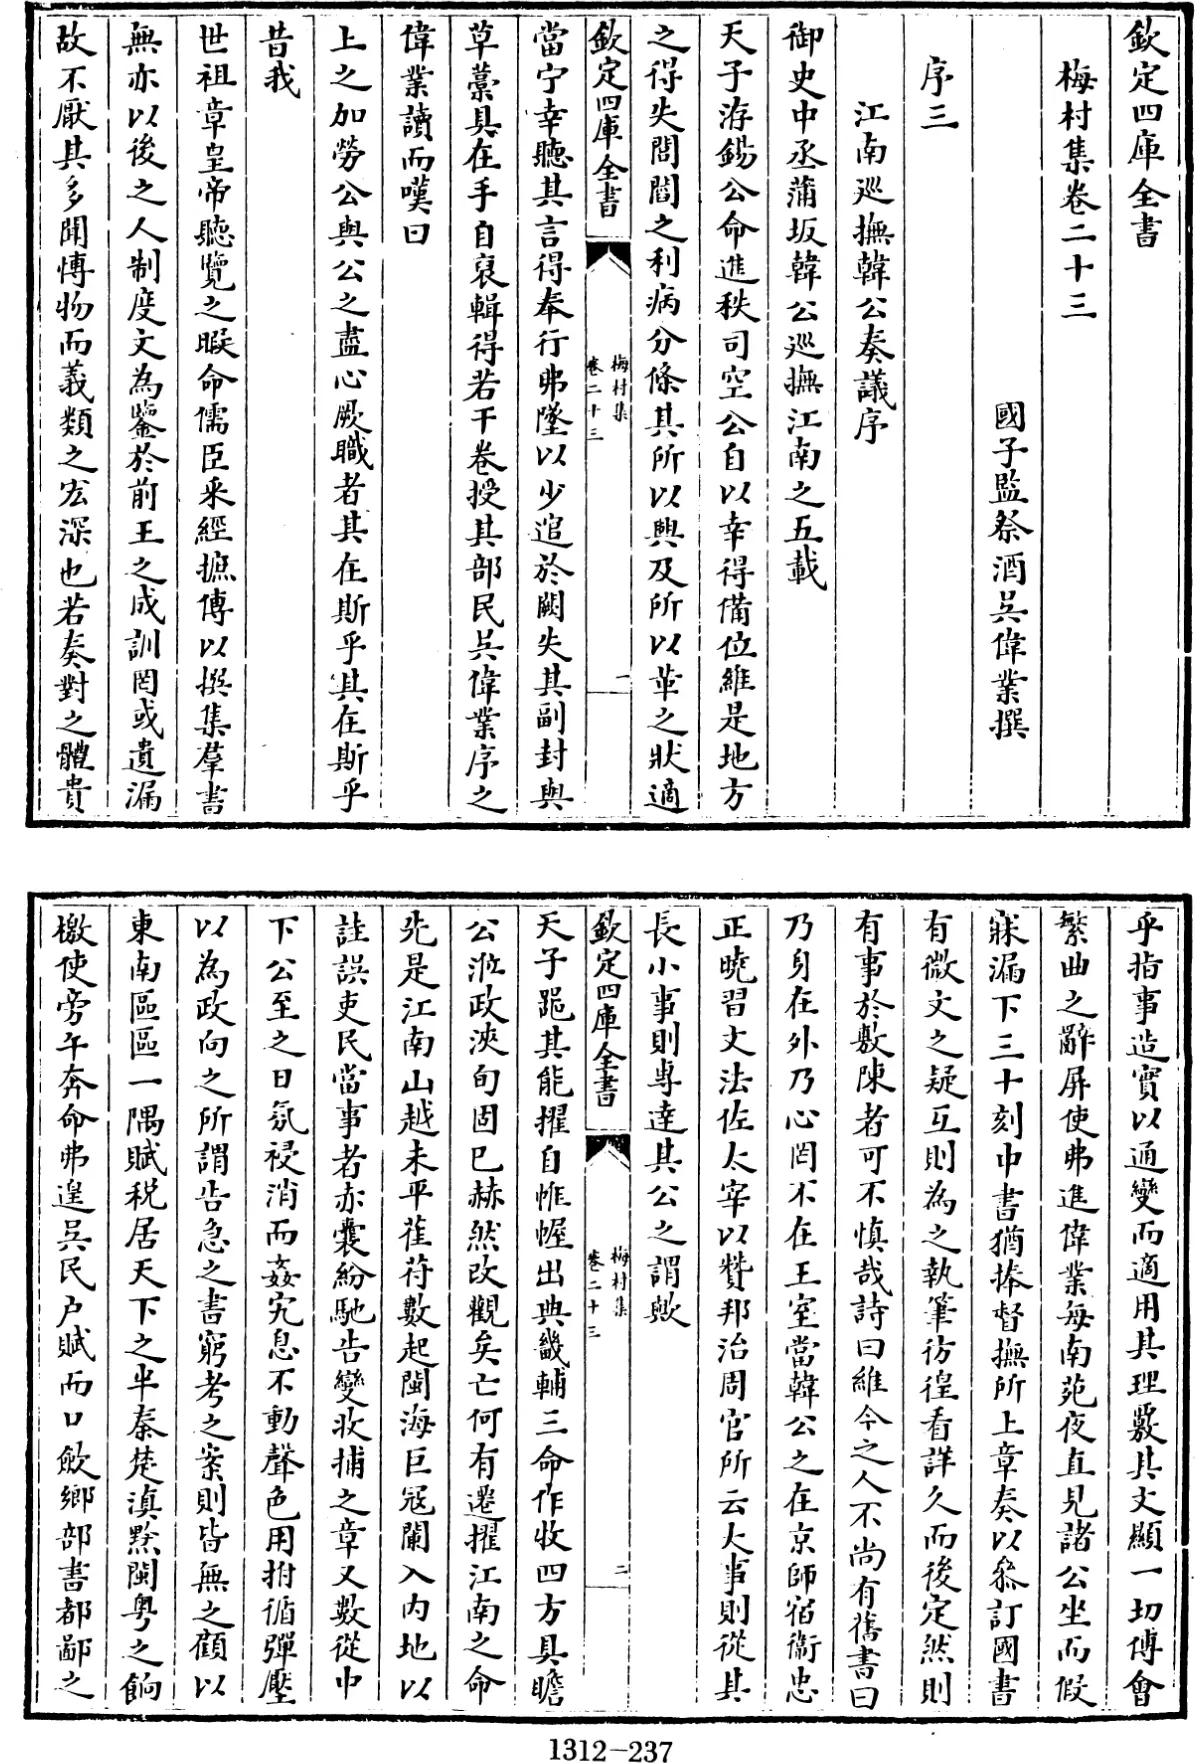 欽定四庫全書
梅村集卷二十三
國子監祭酒吳偉業撰
序三
江南巡撫韓公奏議序
御史中丞蒲坂韓公巡撫江南之五載
天子洊錫公命進秩司空公自以幸得備位維是地方
之得失閭閻之利病分條其所以興及所以革之狀適
欽定四庫全書
梅村集
卷二十三
一
當宁幸聽其言得奉行弗墜以少追於闕失其副封與
草藁具在手自裒輯得若干卷授其部民吳偉業序之
偉業讀而嘆曰
上之加勞公與公之盡心厥職者其在斯乎其在斯乎
昔我
世祖章皇帝聽覽之暇命儒臣采經摭傳以撰集羣書
無亦以後之人制度文為鑒於前王之成訓罔或遺漏
故不厭其多聞博物而義類之宏深也若奏對之體貴
乎指事造實以通變而適用其理覈其文顯一切傅會
繁曲之辭屏使弗進偉業每南苑夜直見諸公坐而假
寐漏下三十刻中書猶捧督撫所上章奏以叅訂國書
有微文之疑互則為之執筆彷徨看詳久而後定然則
有事於敷陳者可不慎哉詩曰維今之人不尚有舊書曰
乃身在外乃心罔不在王室當韓公之在京師宿衛忠
正曉習文法佐太宰以贊邦治周官所云大事則從其
長小事則專達其公之謂歟
欽定四庫全書
梅村集
卷二十三
二
天子韙其能擢自帷幄出典畿輔三命作牧四方具瞻
公涖政浹旬固已赫然改觀矣亡何有遷擢江南之命
先是江南山越未平萑苻數起閩海巨冦闌入内地以
詿誤吏民當事者赤囊紛馳告變收捕之章又數從中
下公至之日氛祲消而姦宄息不動聲色用拊循彈壓
以為政向之所謂告急之書窮考之案則皆無之顧以
東南區區一隅賦稅居天下之半秦楚滇黔閩粤之餉
檄使旁午奔命弗遑吳民户賦而口歛鄉部書都鄙之
1312-237